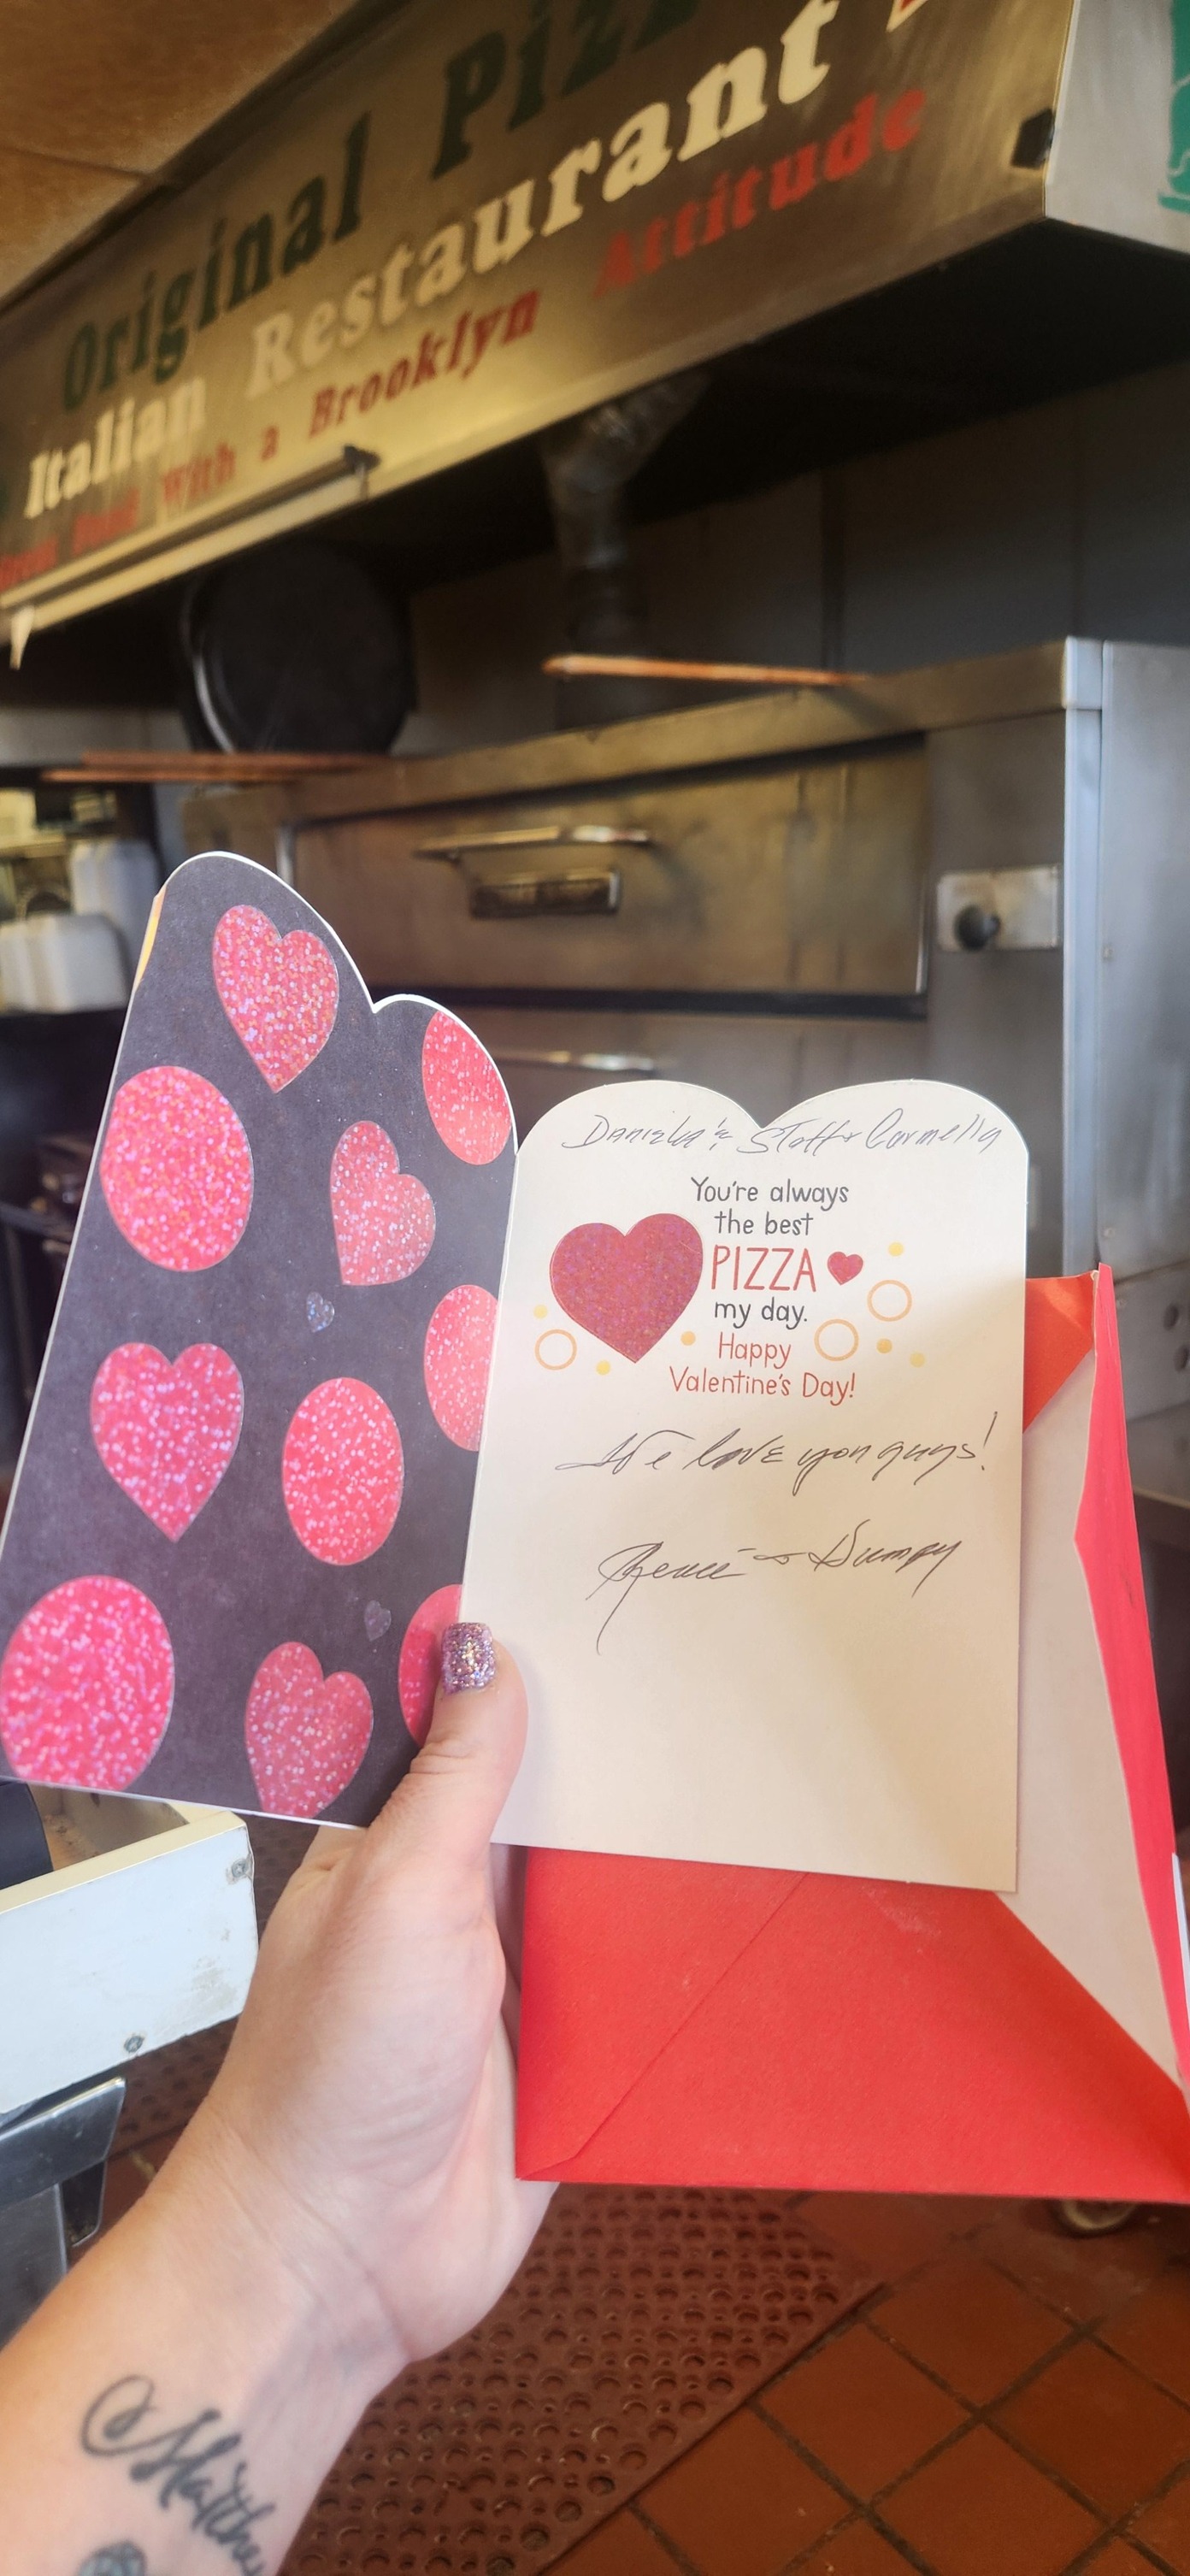 Original
Italian Restaurant
With a Brooklyn Attitude
Daniela's Staff & Carmella
You're always
the best
PIZZA
my day.
Happy
Valentine's Day!
We love you guys!
Renee & Dumpy